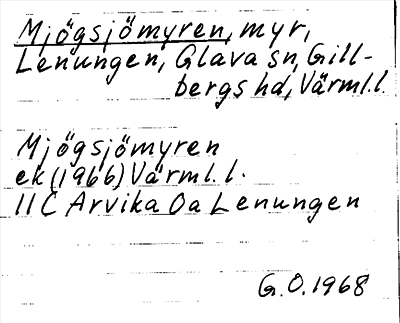 Mjögsjömyren, myr,
Lenungen, Glava sn, Gill-
bergs hd, Värml.l.
Mjögsjömyren
ek (1966) Värml.l.
11C Arvika 0a Lenungen
G.O.1968